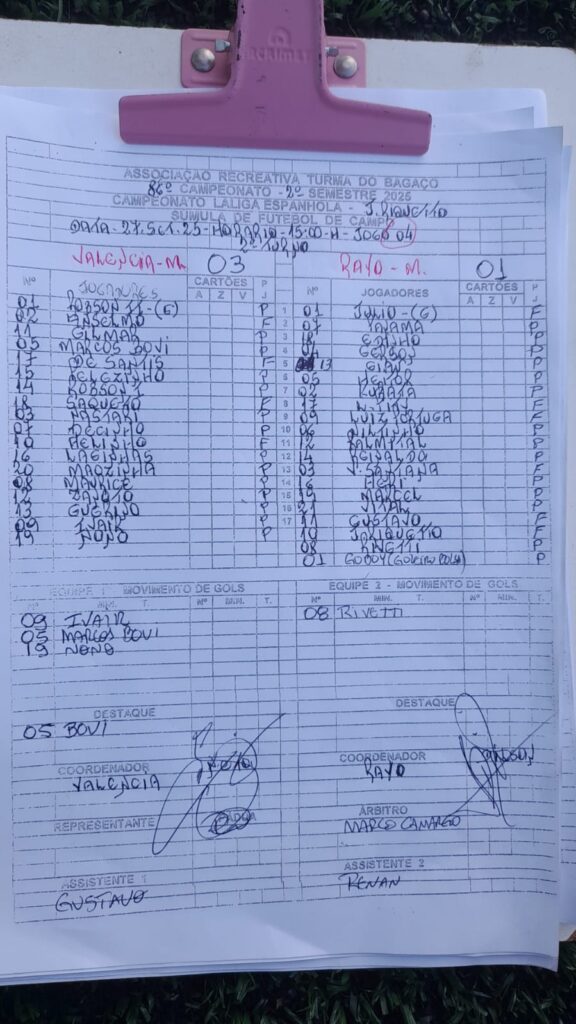 ACRIMET
ASSOCIAÇÃO RECREATIVA TURMA DO BAGAÇO
86º CAMPEONATO - 2º SEMESTRE 2025
CAMPEONATO LALIGA ESPANHOLA -
SUMULA DE FUTEBOL DE CAMPO
DATA - 27.SET.25 - HORARIO - 15:00 - H - JOGO 04
2º TURNO
VALENCIA - M. 03 RAYO - M. 01
Nº JOGADORES CARTÕES P
A Z V J
01 ROBSON II - (G) P
02 ANSELMO F
11 GILMAR P
05 MARCOS BOVI P
17 DE SANTIS F
15 BELEZINHO P
14 ROBSON I P
18 SAQUETO F
03 P
07 DECINHO P
10 HELINHO F
16 LAGINHAS P
20 MAOZINHA P
08 MAURICE P
12 P
13 GUERINO P
09 IVAIR P
19 NONO P
Nº JOGADORES CARTÕES P
A Z V J
1 01 JULIO - (G) F
2 07 P
3 18 EDINHO P
4 04 GERSON P
5 13 GIAN F
6 05 HEITOR P
7 02 KUBATA P
8 17 F
9 09 LUIZ F
10 06 NILTINHO P
11 12 PALMITAL P
12 14 REINALDO P
13 03 V. SANTANA P
14 16 P
15 19 MARCEL P
16 21 VITAL P
17 11 GUSTAVO F
10 F
08 RIVETTI P
01 GODOY (GOLEIRO BOLA) P
EQUIPE 1 - MOVIMENTO DE GOLS
Nº MIN. T. Nº MIN. T.
09 IVAIR
05 MARCOS BOVI
19 NONO
EQUIPE 2 - MOVIMENTO DE GOLS
Nº MIN. T. Nº MIN. T.
08 RIVETTI
DESTAQUE
05 BOVI
COORDENADOR
VALENCIA
REPRESENTANTE
ASSISTENTE 1
GUSTAVO
DESTAQUE
COORDENADOR
RAYO
ÁRBITRO
MARCO CAMARGO
ASSISTENTE 2
RENAN